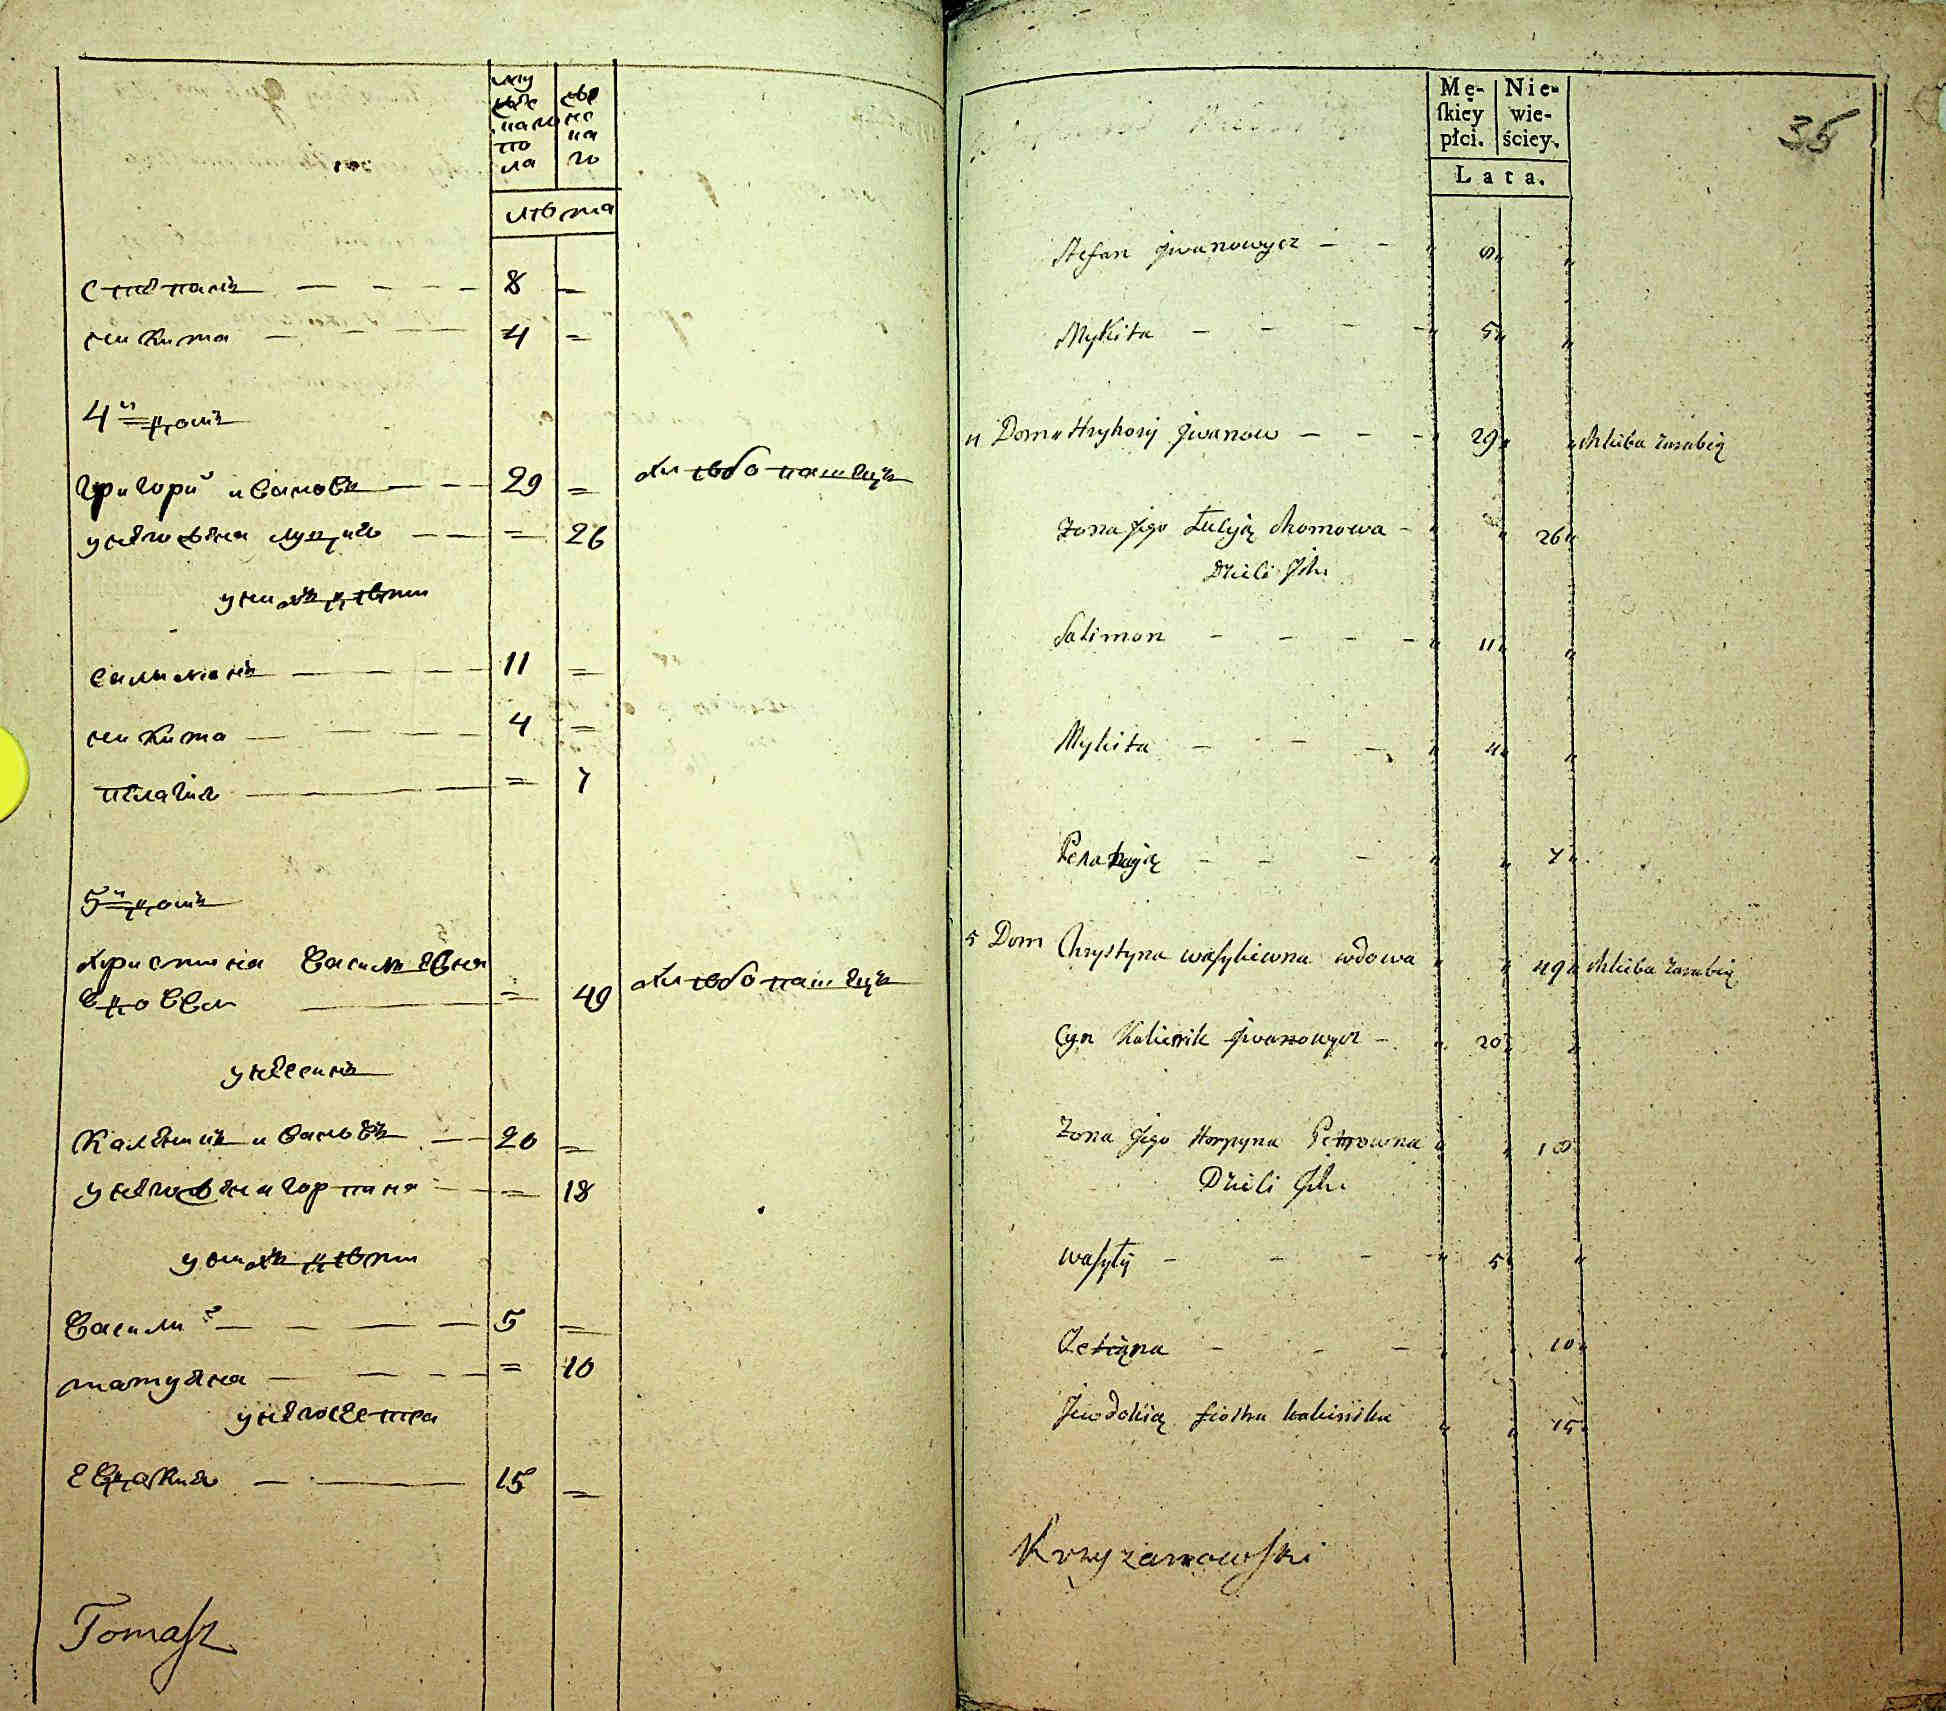 мужескаго пола
женскаго
лѣта
Степанъ — — — — 8 =
никита — — — — 4 =
4й домъ
григорий ивановъ — — 29 = хлѣбопашецъ
унегожена луция — — = 26
унихъ дѣти
Салимонъ — — — — 11 =
никита — — — — 4 =
пелагия — — = 7
5й домъ
христина василевна
вдова — = 49 хлѣбопашецъ
унеесинъ
Каленикъ ивановъ — — 20 =
унегожена горпина — — = 18
унихъ дѣти
Василий — — — — 5 =
татуяна — — — — = 10
унегосестра
евдокия — — 15 =
Tomasz
35
Mę- Nie-
ſkiey wie-
płci. ściey.
Lata.
Stefan Jwanowycz - - " 8 " "
Mykita - - - - " 5 " "
4 Dom " Hryhory Jwanow - - - " 29 " " chliba zarabią
Zona Jego Łucyją chomowa - " " 26 "
Dzieti Jch
Salimon - - - - " 11 " "
Mykita - - - " 4 " "
Pelahyją - - - " " 7 "
5 Dom Chrystyna wasylewna wdowa " " 49 " chliba zarabią
Cyn Kalienik Jwanowycz - " 20 " "
Zona Jego Horpyna Petrowna " " 18
Dzieti Jch
wasyly - - - " 5 " "
10 "
Jewdokią siostra kalienika " " 15 "
Krzyzanowſki